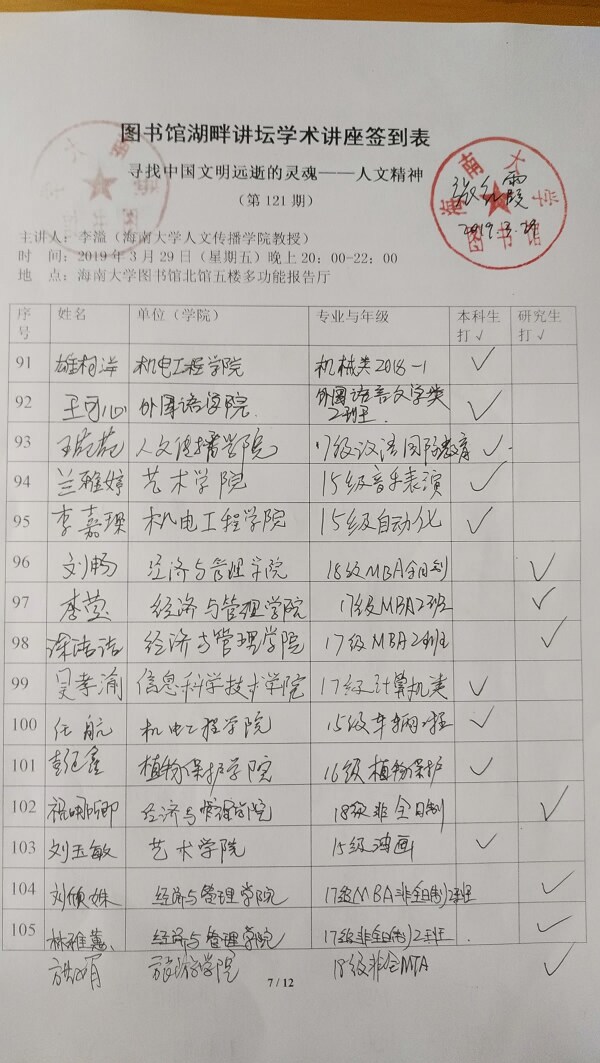 图书馆湖畔讲坛学术讲座签到表
寻找中国文明远逝的灵魂——人文精神
（第 121 期）
海南大学
图书馆
2019.3.29
主讲人：李溢（海南大学人文传播学院教授）
时　间：2019 年 3 月 29 日（星期五）晚上 20：00-22：00
地　点：海南大学图书馆北馆五楼多功能报告厅
序号 姓名 单位（学院） 专业与年级 本科生打√ 研究生打√
91 雄柯洋 机电工程学院 机械类2018-1 ✓
92 王可心 外国语学院 外国语言文学类2班 ✓
93 人文传播学院 17级汉语国际教育 ✓
94 兰雅婷 艺术学院 15级音乐表演 ✓
95 李嘉璞 机电工程学院 15级自动化 ✓
96 刘畅 经济与管理学院 18级MBA全日制 ✓
97 李莹 经济与管理学院 17级MBA2班 ✓
98 涂洁洁 经济与管理学院 17级MBA2班 ✓
99 吴孝渝 信息科学技术学院 17级计算机类 ✓
100 任航 机电工程学院 15级车辆工程 ✓
101 植物保护学院 16级植物保护 ✓
102 祝明卿 经济与管理学院 18级非全日制 ✓
103 刘玉敏 艺术学院 15级油画 ✓
104 刘倾姝 经济与管理学院 17级MBA非全日制2班 ✓
105 林雅蕙 经济与管理学院 17级非全日制2班 ✓
旅游学院 18级非全MTA ✓
7 / 12